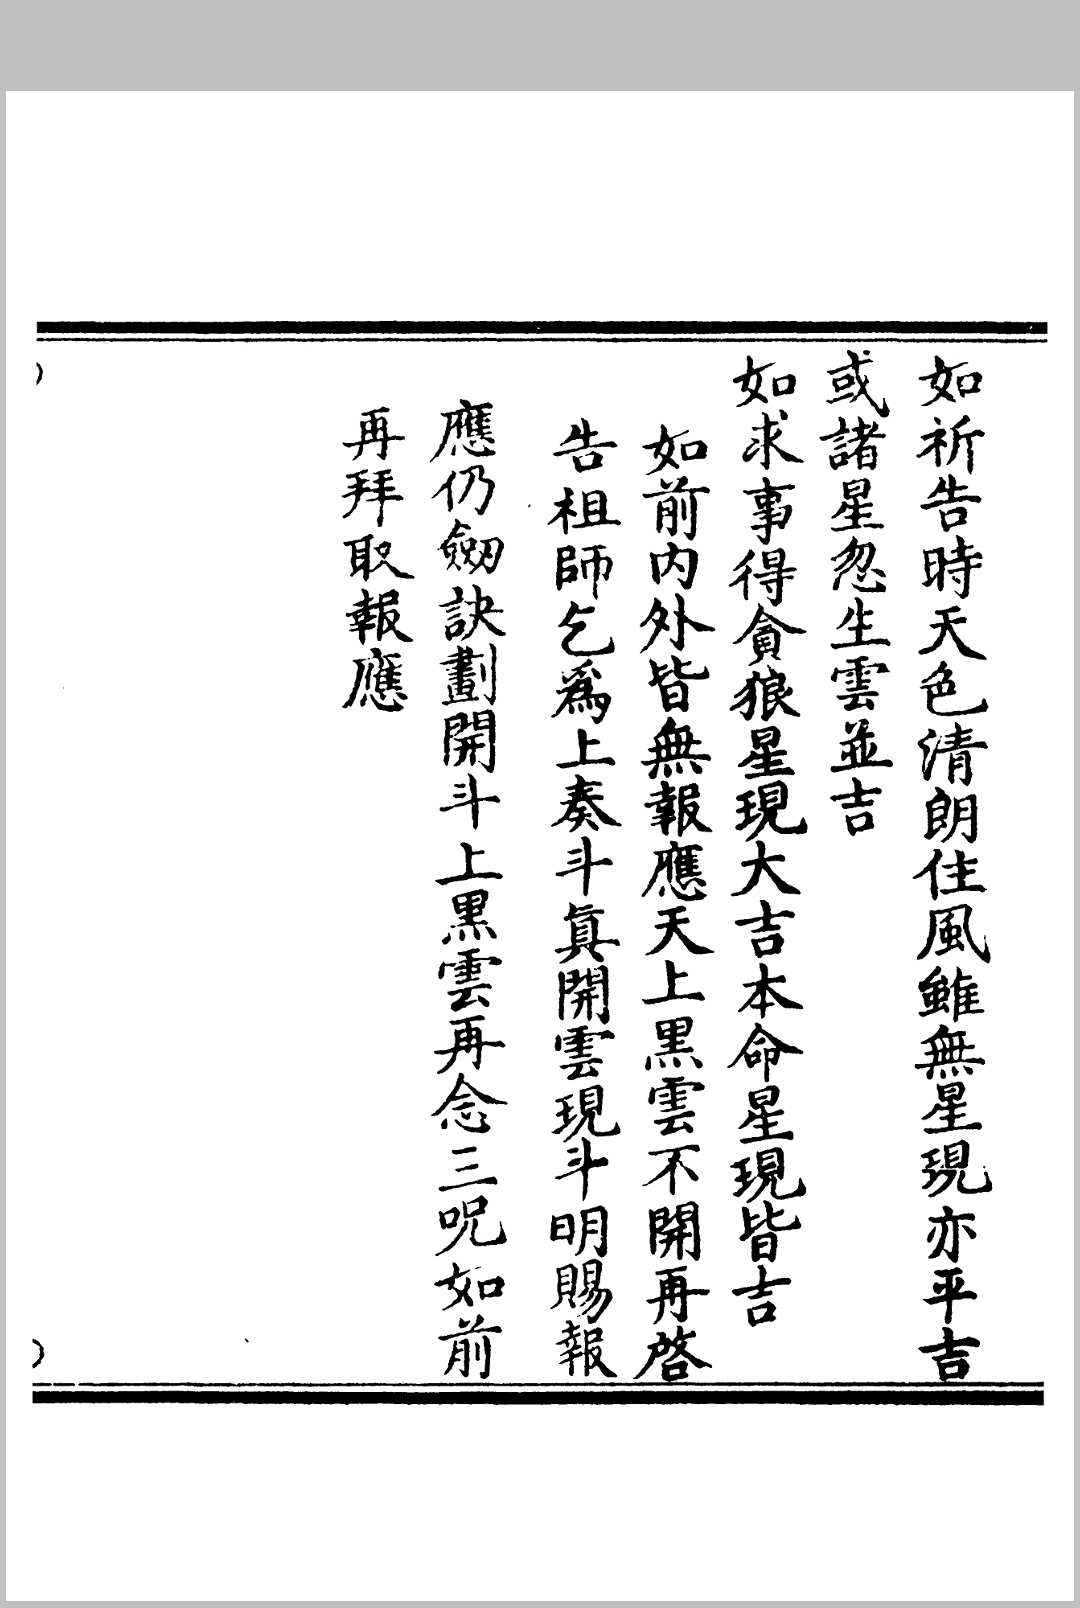 如祈告時天色清朗住風雖無星現亦平吉
或諸星忽生雲並吉
如求事得貪狼星現大吉本命星現皆吉
如前內外皆無報應天上黑雲不開再啓
告祖師乞爲上奏斗眞開雲現斗明賜報
應仍劒訣劃開斗上黑雲再念三呪如前
再拜取報應